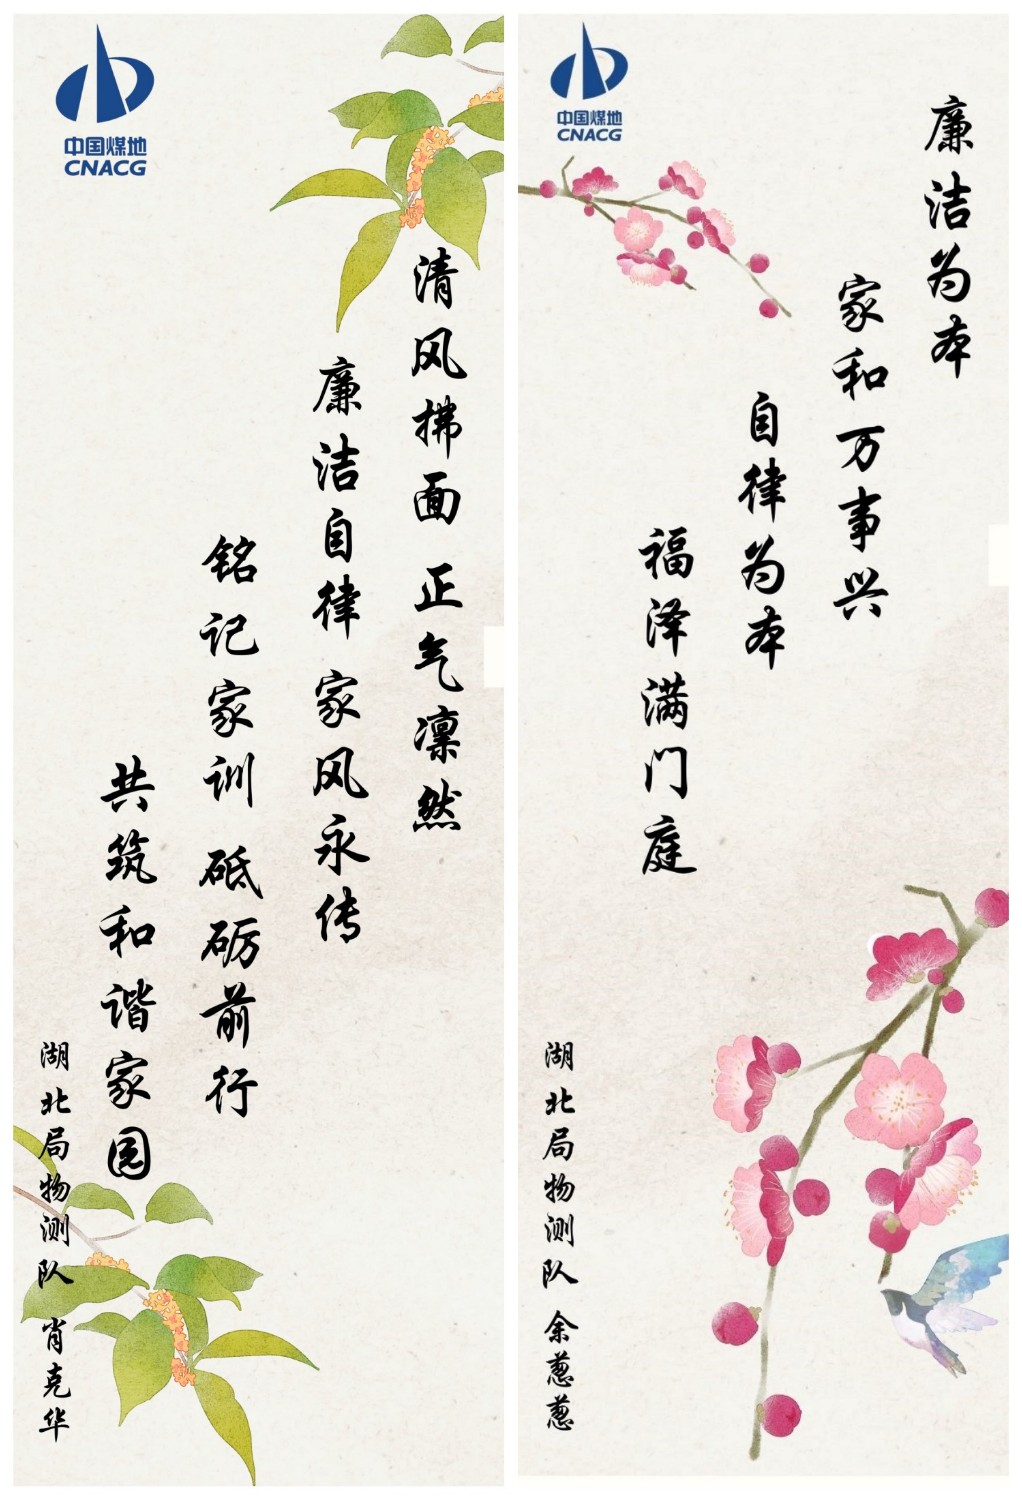 中国煤地
CNACG
清风拂面 正气凛然
廉洁自律 家风永传
铭记家训 砥砺前行
共筑和谐家园
湖北局物测队 肖克华
中国煤地
CNACG
廉洁为本
家和万事兴
自律为本
福泽满门庭
湖北局物测队 余葱葱